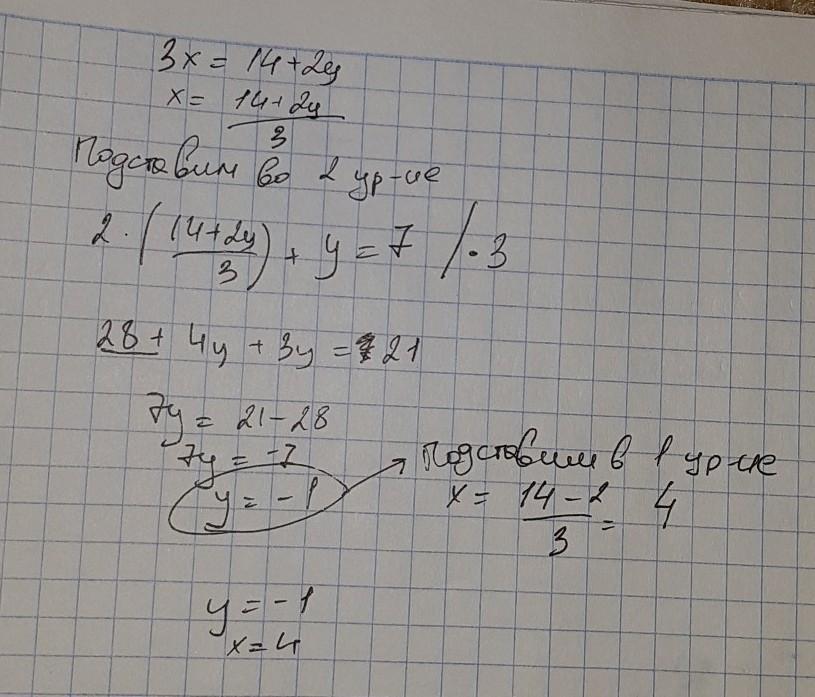 3x = 14+2y
x = 14+2y
3
Подставим во 2 ур-ие
2 · (14+2y
3) + y = 7 / · 3
28 + 4y + 3y = 21
7y = 21 - 28
7y = -7
y = -1
Подставим в 1 ур-ие
x = 14-2
3 = 4
y = -1
x = 4